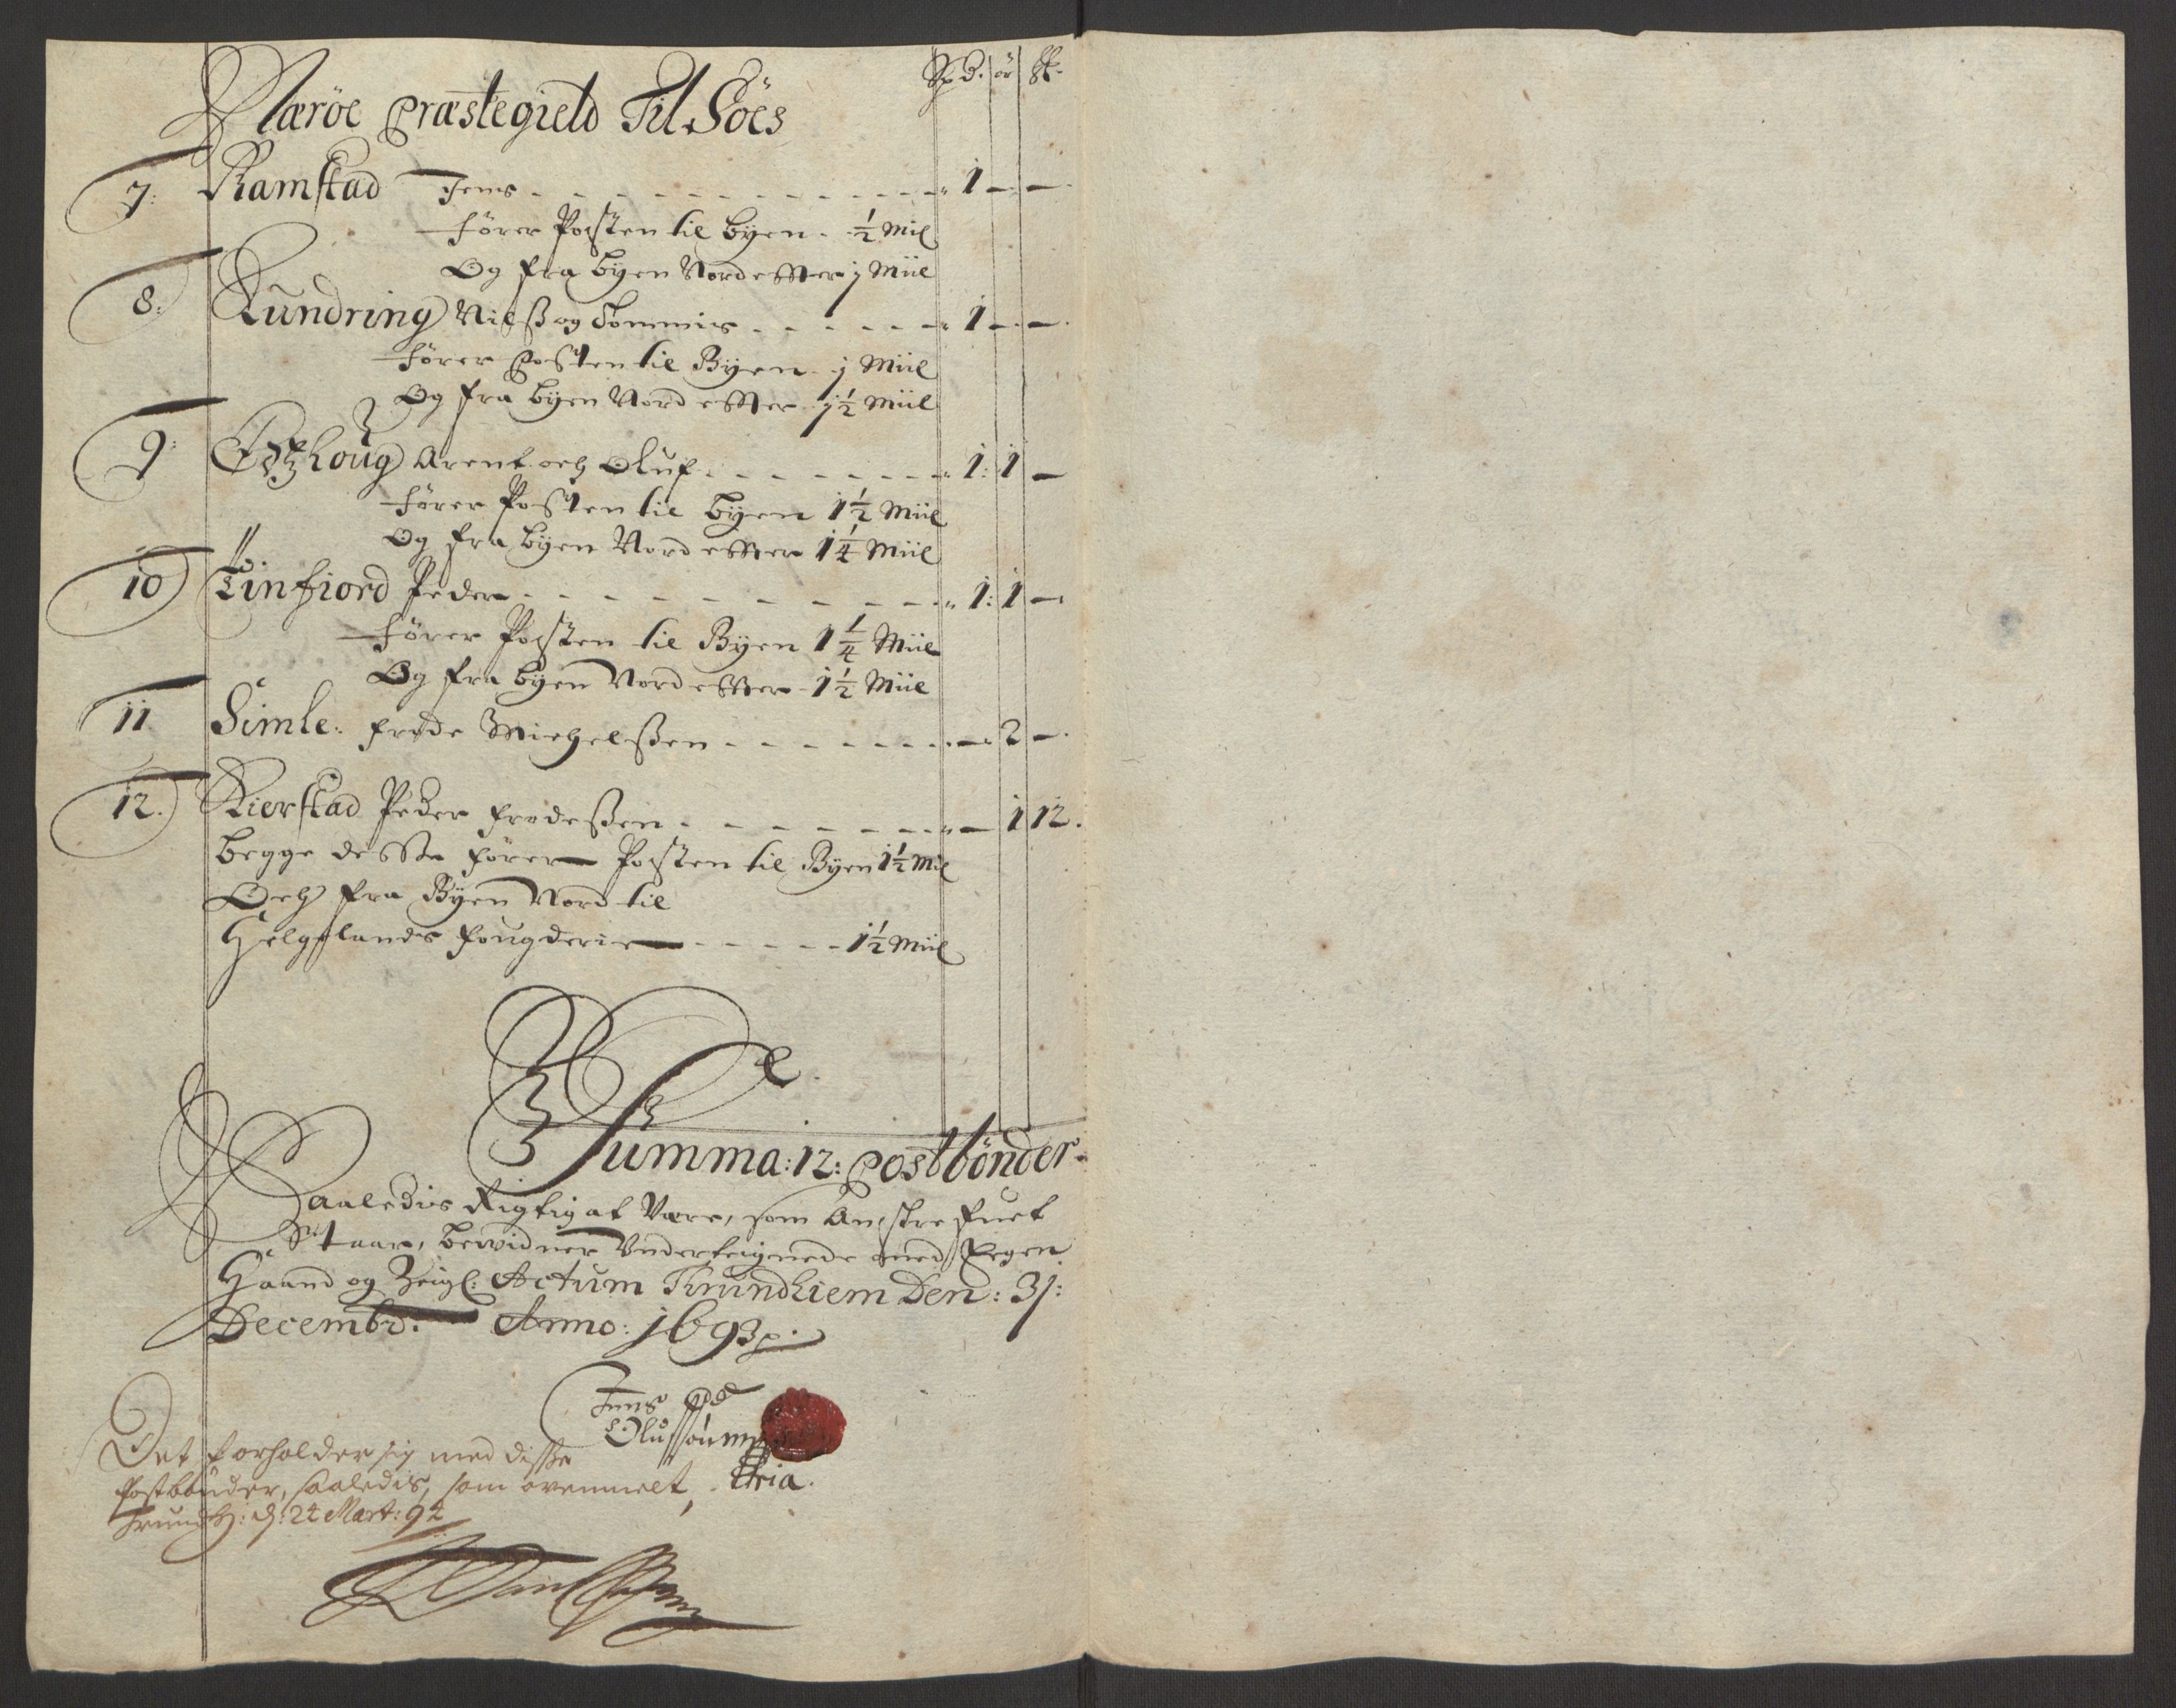 Spd. ör ℔
Næröe Præstegield Til Söes
7: Ramstad Jens - - - 1 — —
förer Posten til byen - ½ Mil
Og fra byen Nord effter j Miil
8: Lundring Nilß og Tommis - - - 1 — —
förer Posten til Byen - j Miil
Og fra byen Nord effter - j½ Miil
9: Foshoug Arent och Oluf - - - 1: 1 —
förer Posten til byen 1½ Miil
Og fra byen Nord effter 1¼ Miil
10 Finfiord Peder - - - 1: 1 —
förer Posten til Byen 1¼ Miil
Og fra byen Nord effter - 1½ Miil
11. Simle: frode Michelßen - - - — 2 —
12. Kierstad Peder frodeßen - - - — 1 12.
begge desse förer Posten til Byen 1½ Mil
Och fra Byen Nord til
Helgelands fougderie - - - 1½ Miil
Summa: 12: Postbönder
Saaledis Rigtig at Vere, som Anstre fuet
Staar, bewidner Underteignede med Egen
Haand og Zeigl: Actum Trundhiem Den: 31:
Decembr: Anno: 1693
Jens
Olussøn
Det forholder sig med disse
Postbönder, saaledis, som ovenmelt,
Trundh: d: 24 Mart: 94